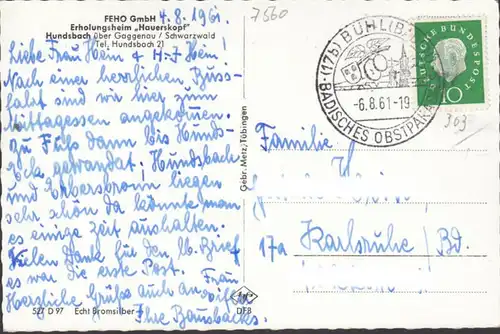 FEHO GmbH
Erholungsheim „Hauerskopf"
Hundsbach über Gaggenau / Schwarzwald
Tel. Hundsbach 21
4.8.1961.
7560
Liebe Frau Hein & H-J Hein!
Nach einer herrlichen Buss-
fahrt sind wir hier zum
Mittagessen angekommen.
zu Fuss dann bis Hunds-
eck gewandert. Hundsbach
und Erbersbronn liegen
sehr schön da könnte man
es einige zeit aushalten.
Vielen Dank für den lb. Brief
es war die erste Post.
Herzliche Grüße auch an
Ihre Bausbacks.
527 D 97 Echt Bromsilber
Gebr. Metz, Tübingen
DFB
(17b) BÜHL (B
-6.8.61-19
BADISCHES OBSTPARA
DEUTSCHE BUNDESPOST
10
303
Familie H
17a Karlsruhe / Bd.